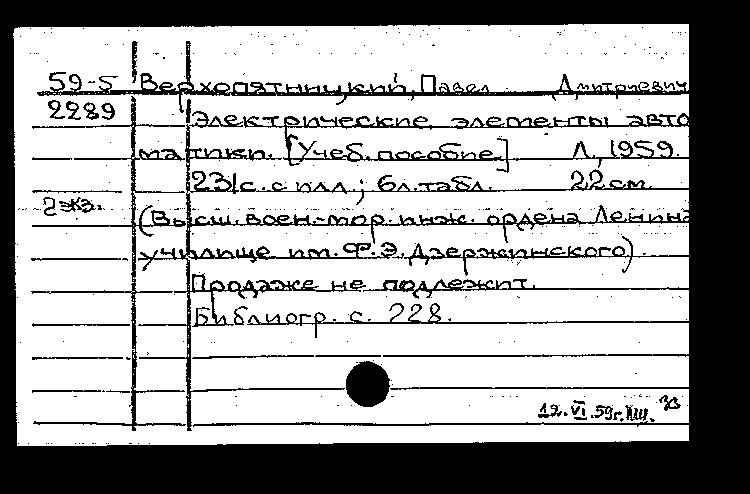 59-5 Верхопятницкий, Павел Дмитриевич
2289 Электрические элементы авто
матики. [Учеб. пособие] Л., 1959.
231 с. с илл.; 6 л. табл. 22 см.
2 экз. (Высш. воен.-мор. инж. ордена Ленина
училище им. Ф. Э. Дзержинского)
Продаже не подлежит.
Библиогр. с. 228.
12.VI.59г.